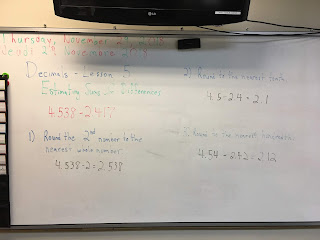 LG
Thursday, November 2
Jeudi 2 Novembre
Decimals - Lesson 5
Estimating Sums Differences
4.538 - 2.417?
1) Round the 2nd number to the
nearest whole number
4.538 - 2 = 2.538
2) Round to the nearest tenth
4.5 - 2.4 = 2.1
3) Round to the nearest hundredth
4.54 - 2.42 = 2.12